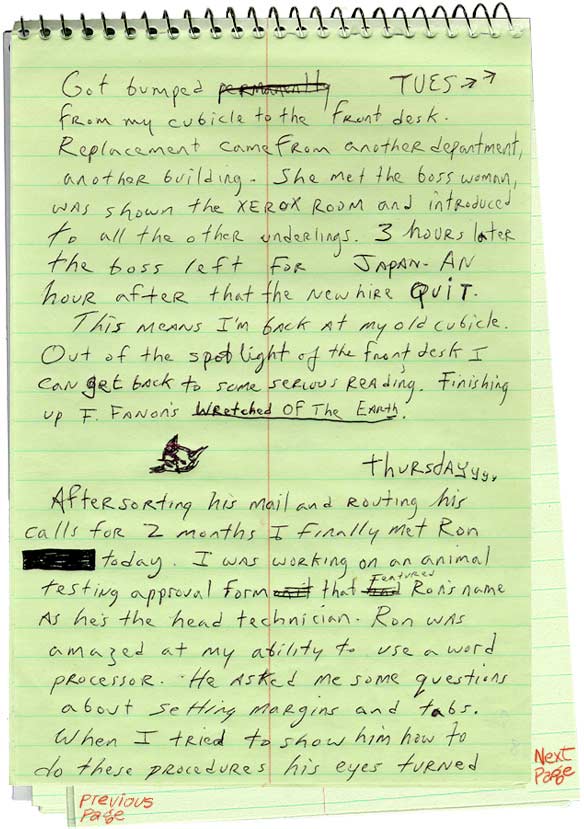 Got bumped permanently TUES
from my cubicle to the front desk.
Replacement came from another department,
another building. She met the boss woman,
was shown the XEROX ROOM and introduced
to all the other underlings. 3 hours later
the boss left for JAPAN. AN
hour after that the new hire QUIT.
This means I'm back at my old cubicle.
Out of the spotlight of the front desk I
can get back to some serious reading. Finishing
up F. FANON'S Wretched Of The Earth.
thursdayyyy
After sorting his mail and routing his
calls for 2 months I finally met Ron
today. I was working on an animal
testing approval form that Featured Ron's name
As he's the head technician. Ron was
amazed at my ability to use a word
processor. He asked me some questions
about setting margins and tabs.
When I tried to show him how to
do these procedures his eyes turned
Next
Page
Previous
Page